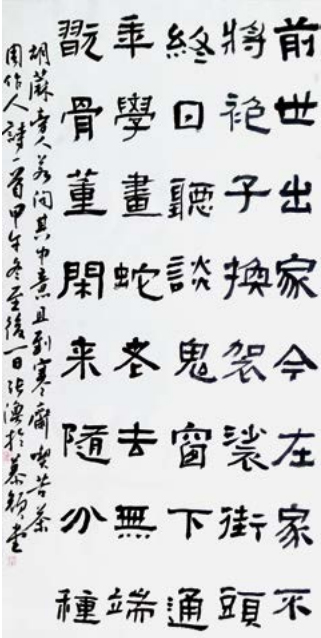 前世出家今在家不
將袍子換袈裟街頭
終日聽談鬼窗下通
年學畫蛇老去無端
翫骨董閑来隨分種
胡蔴旁人若问其中意且到寒齋喫苦茶
周作人詩一首甲午冬至後一日张於慕顔堂